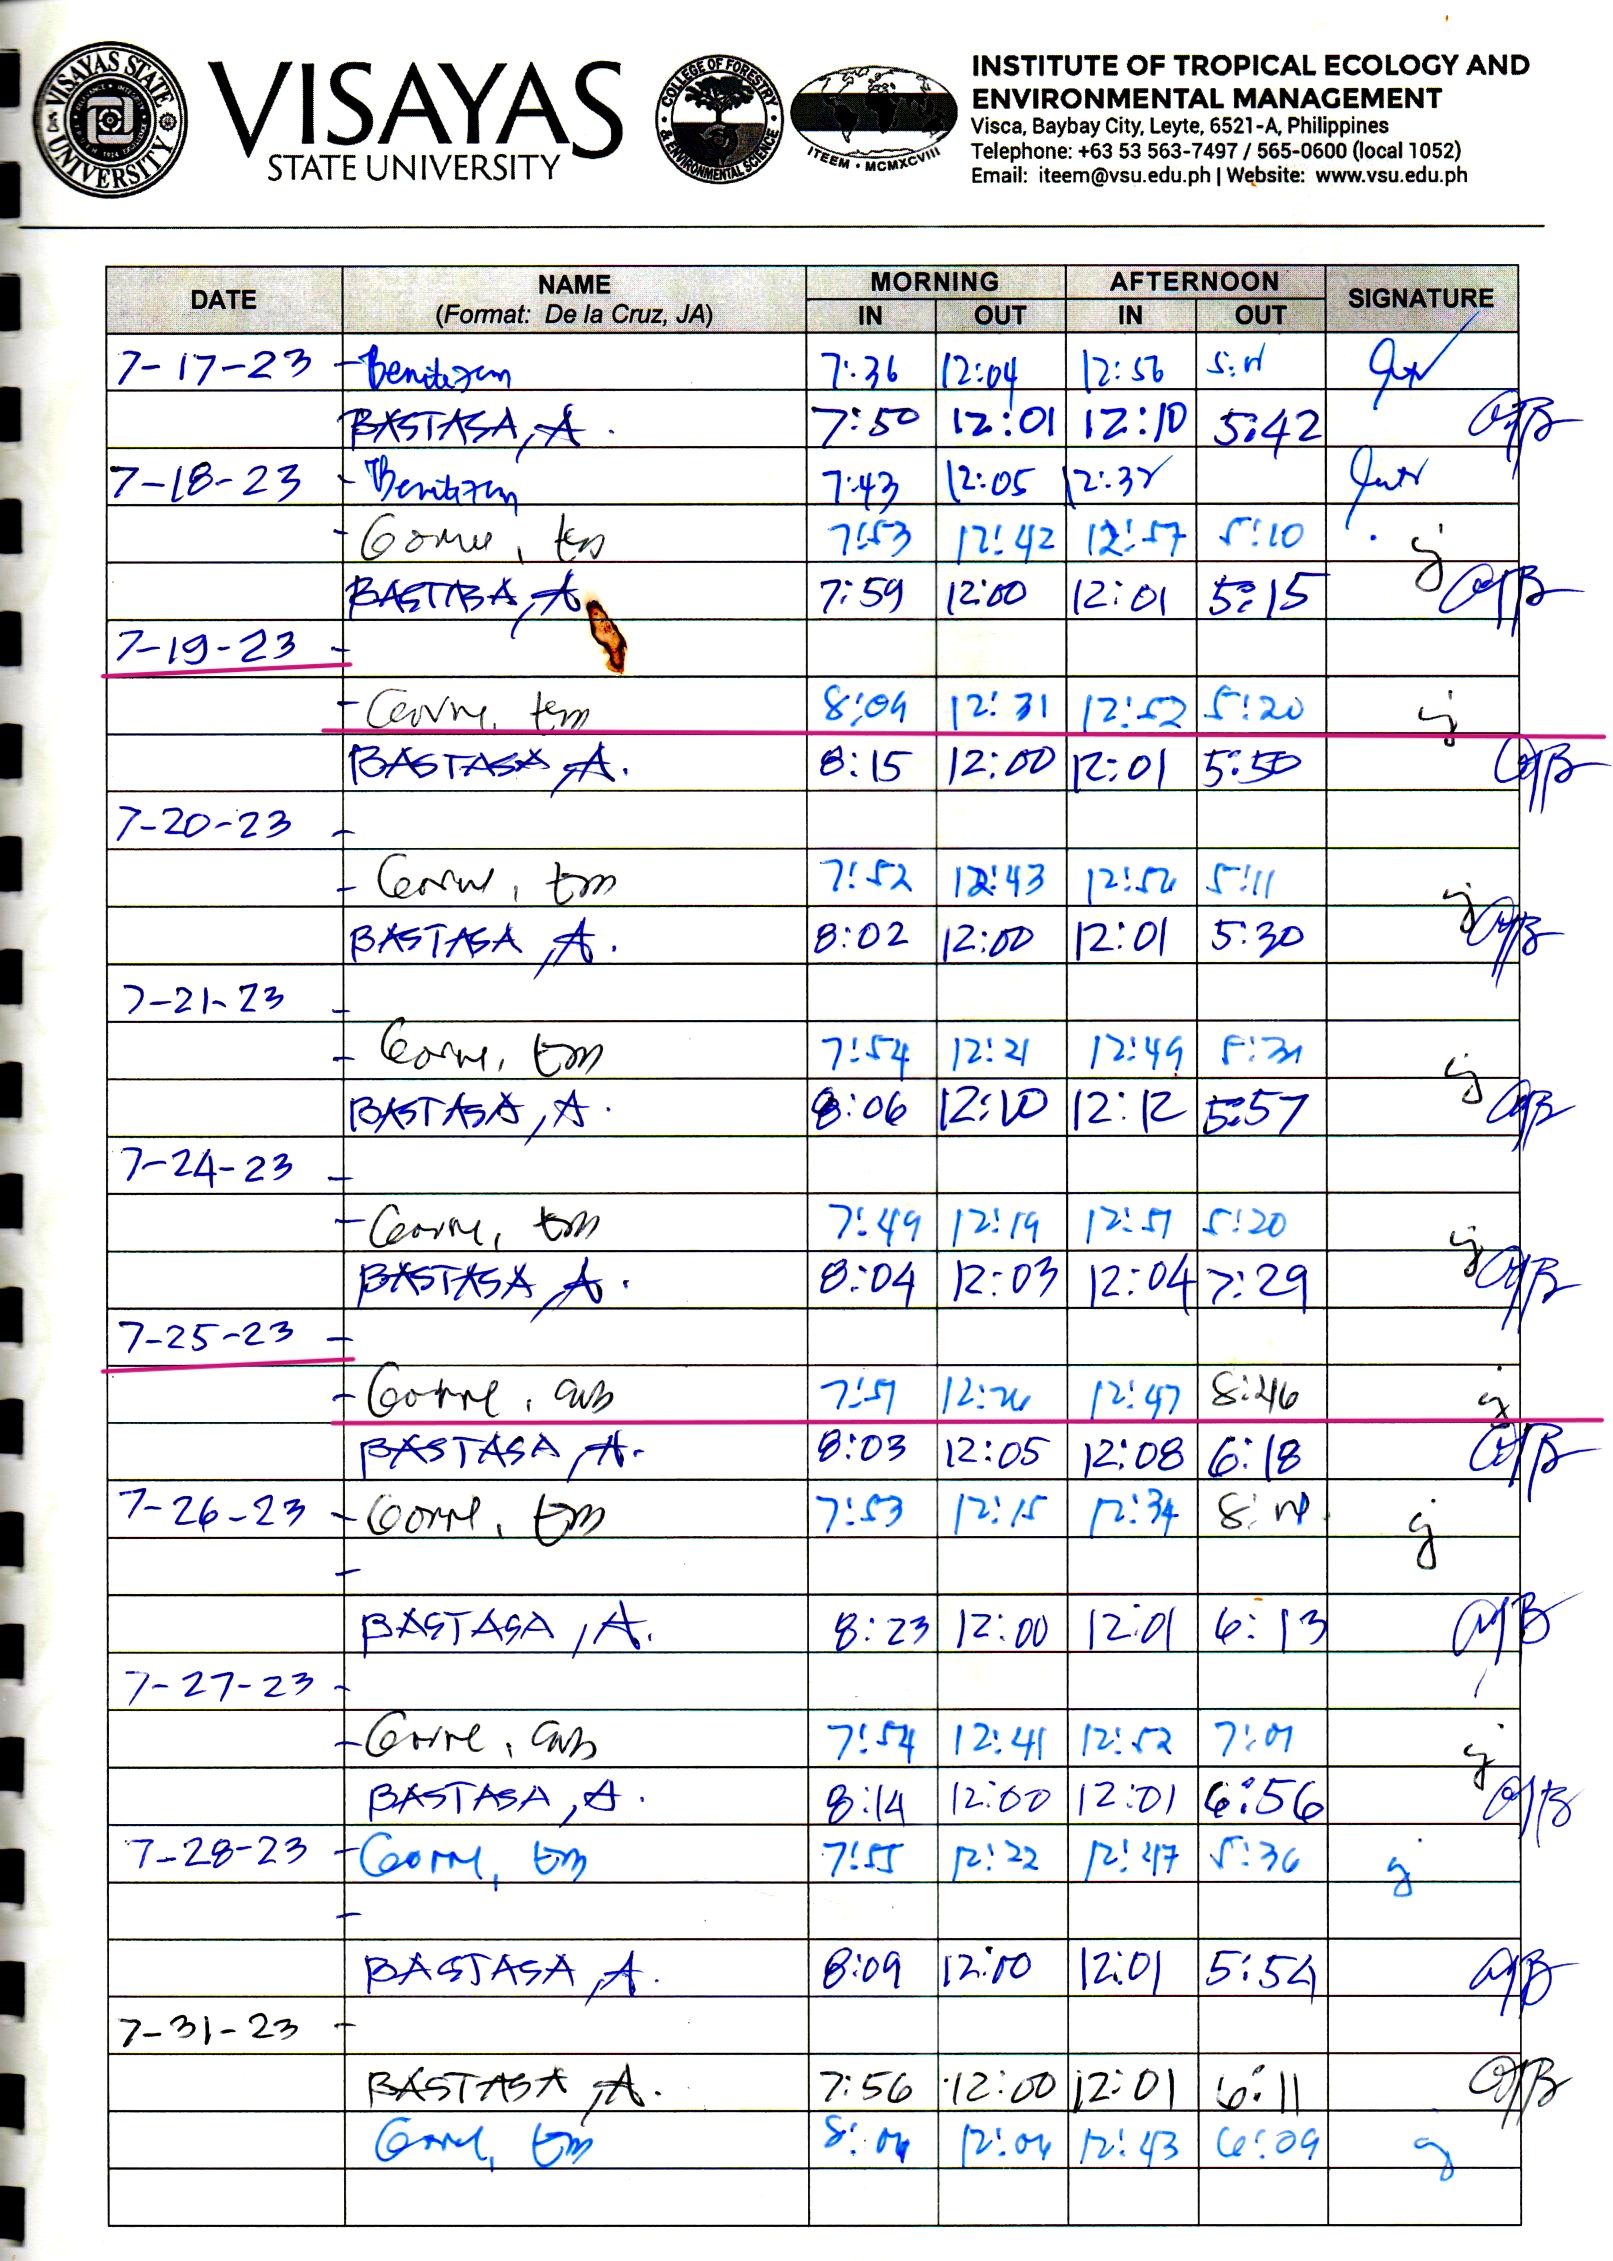 VISAYAS STATE UNIVERSITY
VISAYAS
STATE UNIVERSITY
COLLEGE OF FORESTRY & ENVIRONMENTAL SCIENCE
ITEEM • MCMXCVIII
INSTITUTE OF TROPICAL ECOLOGY AND
ENVIRONMENTAL MANAGEMENT
Visca, Baybay City, Leyte, 6521-A, Philippines
Telephone: +63 53 563-7497 / 565-0600 (local 1052)
Email: iteem@vsu.edu.ph | Website: www.vsu.edu.ph
DATE NAME MORNING AFTERNOON SIGNATURE
(Format: De la Cruz, JA) IN OUT IN OUT
7-17-23 - 7:36 12:04 12:56
BASTASA, A. 7:50 12:01 12:10 5:42
7-18-23 - 7:43 12:05 12:32
- 7:53 12:42 12:57 5:10
BASTASA, A 7:59 12:00 12:01 5:15
7-19-23 -
- 8:09 12:31 12:52 5:20
BASTASA, A. 8:15 12:00 12:01 5:50
7-20-23 -
- 7:52 12:43 12:52 5:11
BASTASA, A. 8:02 12:00 12:01 5:30
7-21-23 -
- 7:54 12:21 12:49 5:31
BASTASA, A. 8:06 12:10 12:12 5:57
7-24-23 -
- 7:49 12:19 12:51 5:20
BASTASA, A. 8:04 12:03 12:04 7:29
7-25-23 -
- Gorne, 7:51 12:26 12:47 8:46
BASTASA, A. 8:03 12:05 12:08 6:18
7-26-23 - Gorne, 7:53 12:15 12:34
-
BASTASA, A. 8:23 12:00 12:01 6:13
7-27-23 -
- Gorne, 7:54 12:41 12:52 7:01
BASTASA, A. 8:14 12:00 12:01 6:56
7-28-23 - Gorne, 7:55 12:22 12:47 5:36
-
BASTASA, A. 8:09 12:00 12:01 5:54
7-31-23 -
BASTASA, A. 7:56 12:00 12:01 6:11
8:04 12:04 12:43 6:09